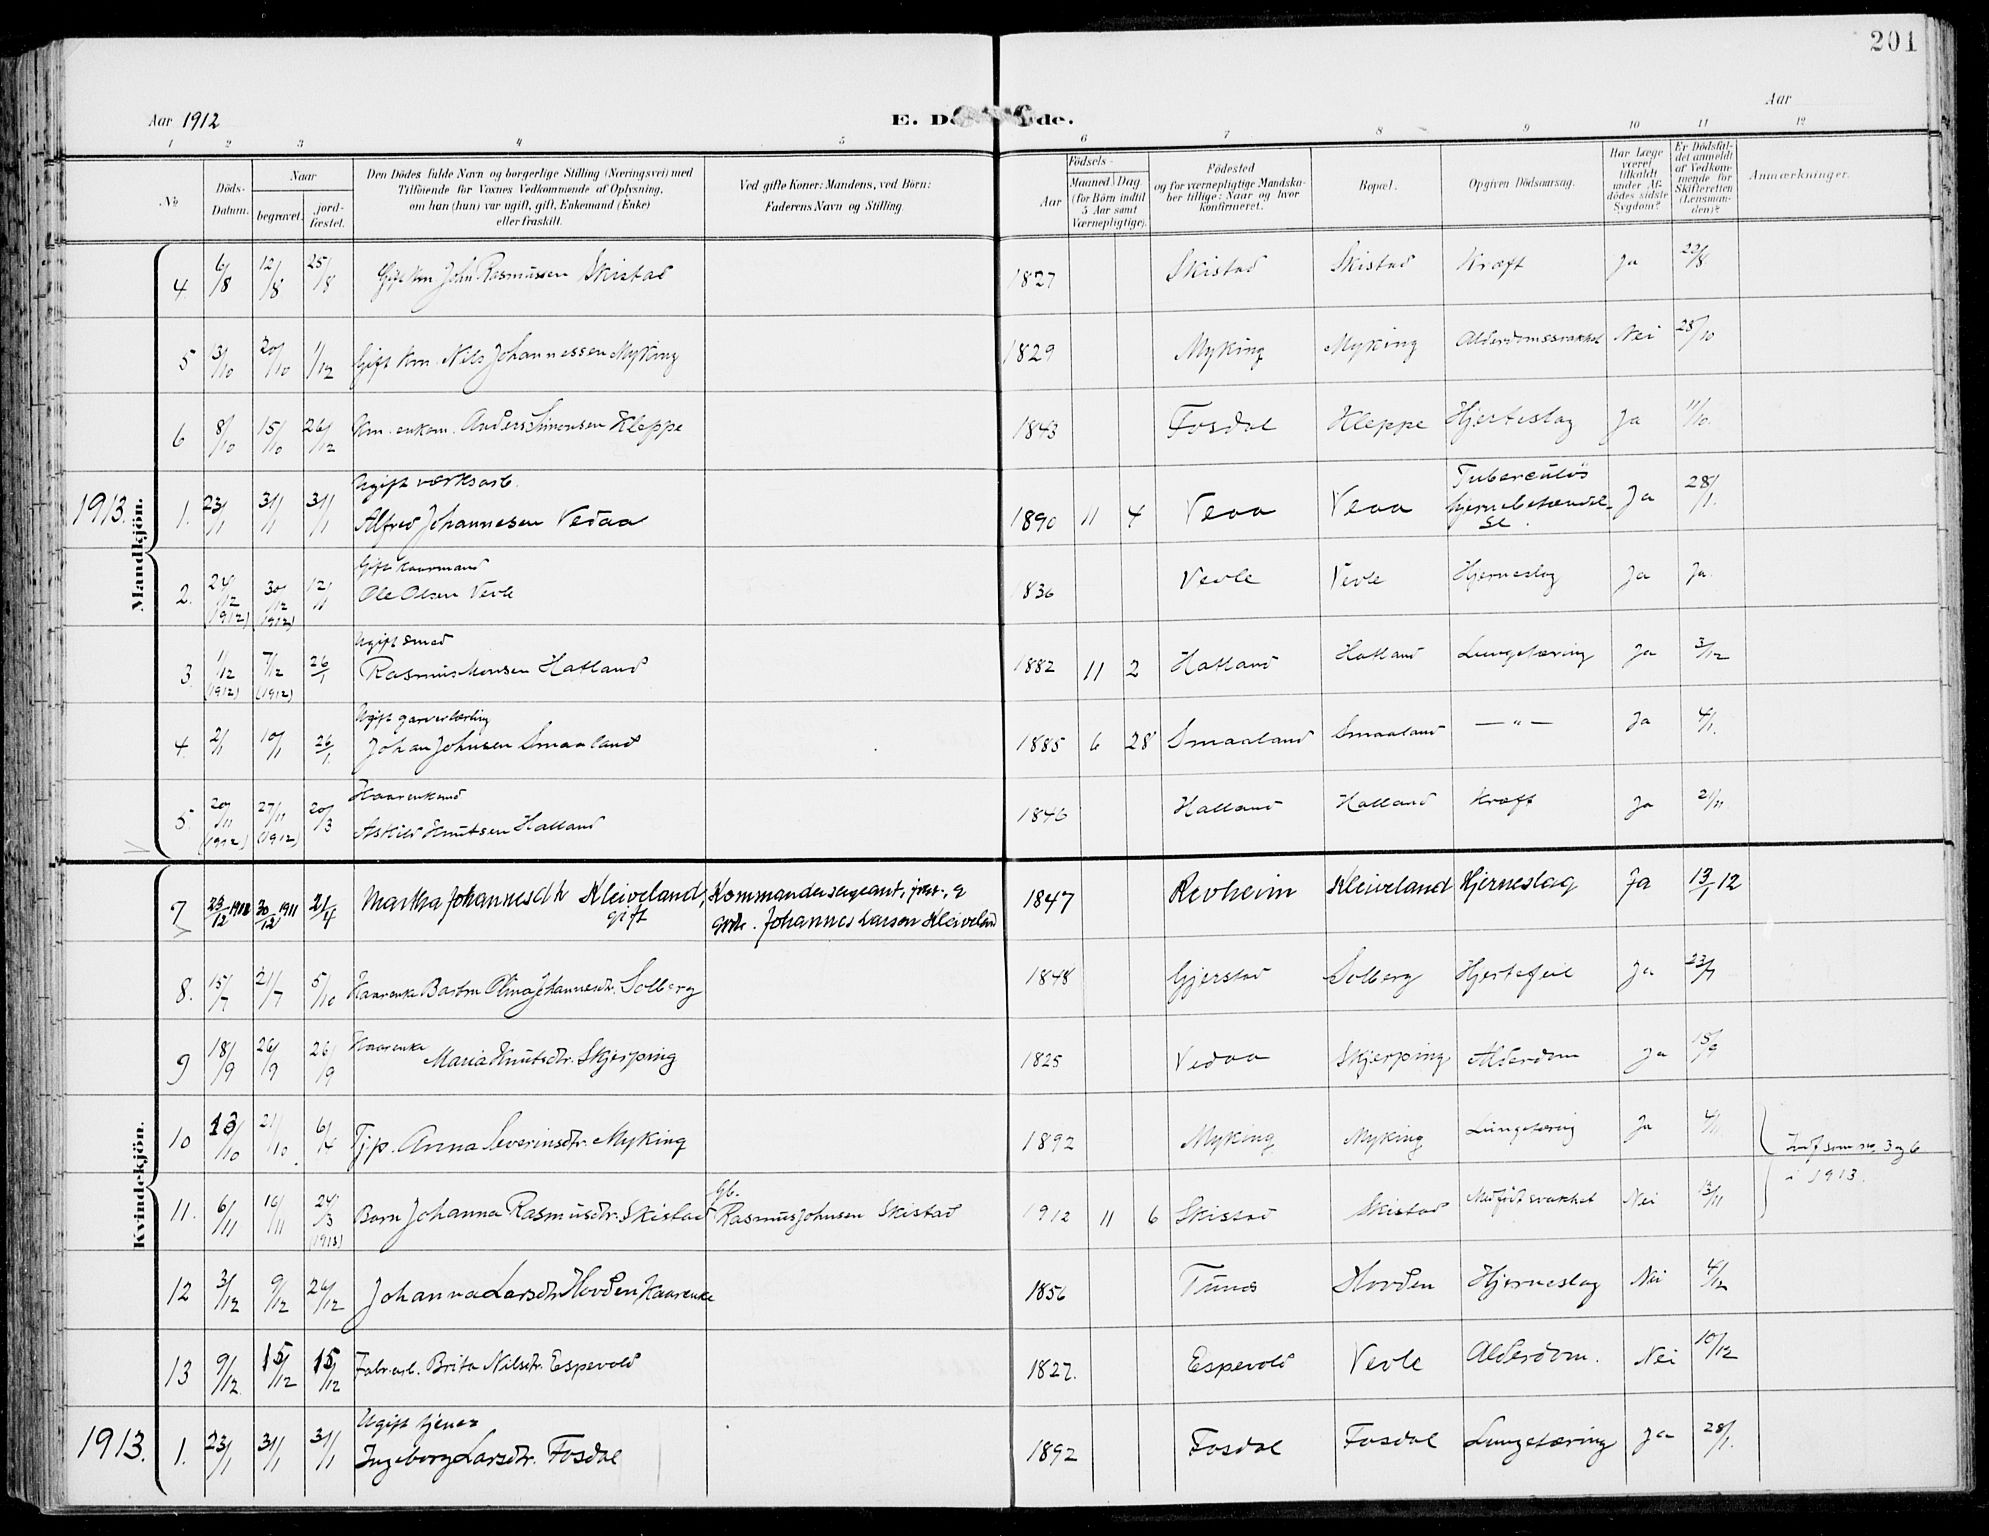 201
Aar 1912
E. Dö de.
Aar
1 2 3 4 5 6 7 8 9 10 11 12
No.
Döds-Datum.
Naar
begravet.
jord-fæstet.
Den Dödes fulde Navn og borgerlige Stilling (Næringsvei) med
Tilföiende for Voxnes Vedkommende af Oplysning,
om han (hun) var ugift, gift, Enkemand (Enke)
eller fraskilt.
Ved gifte Koner: Mandens, ved Börn:
Faderens Navn og Stilling.
Födsels-
Aar
Maaned Dag
(for Börn indtil
5 Aar samt
Værnepligtige).
Födested
og for værnepligtige Mandska-
ber tillige: Naar og hvor
konfirmeret.
Bopæl.
Opgiven Dödsaarsag.
Har Læge
været
tilkaldt
under Af-
dödes sidste
Sygdom?
Er Dödsfal-
det anmeldt
af Vedkom-
mende for
Skifteretten
(Lensman-
den)?
Anmærkninger.
Mandkjön.
4 6/8 12/8 25/8 Gift km John Rasmussen Skistad 1827 Skistad Skistad Kræft Ja 22/8
5 3/10 20/10 1/12 Gift km. Nils Johannessen Myking 1829 Myking Myking Alderdomssvakhet Nei 28/10
6 8/10 15/10 26/12 km. enkem. Anders Simonsen Kleppe 1843 Fosdal Kleppe Hjerteslag Ja 11/10.
1913. 1. 23/1 31/1 31/1 Ugift værksarb. Alfred Johannesen Vedaa 1890 11 4 Vedaa Vedaa Tuberculös hjernebetændelse. Ja 28/1.
2. 24/12 (1912) 30/12 (1912) 12/1 Gift kaarmand Ole Olsen Vevle 1836 Vevle Vevle Hjerneslag Ja Ja.
3. 1/12 (1912) 7/12 (1912) 26/1 Ugift smed Rasmus Monsen Hatland 1882 11 2 Hatland Hatland Lungetæring Ja 3/12
4. 2/1 10/1 26/1 Ugift garverlærling Johan Johnsen Smaaland 1885 6 28 Smaaland Smaaland — " — Ja 4/1.
5. 20/11 (1912) 27/11 (1912) 20/3 Kaarenkemd Askild Knutsen Hatland 1846 Hatland Hatland Kræft Ja 21/11
Kvindekjön.
7 23/12 1911 30/12 1911 21/4 Martha Johannesdtr Kleiveland, gift Kommandersergeant, Johannes Larsen Kleiveland 1847 Revheim Kleiveland Hjerneslag Ja 13/1 12
8. 15/7 21/7 5/10 Kaarenke Olina Johannesdtr. Solberg 1848 Gjerstad Solberg Hjertefeil Ja 23/7
9 18/9 26/9 26/9 Kaarenke Maria Knutsdtr. Skjerping 1825 Vedaa Skjerping Alderdom Ja 15/9
10 13/10 21/10. 6/4 Tjp. Anna Severinsdtr. Myking 1892 Myking Myking Lungetæring Ja 4/11 Indf som no 3 og 6
11. 6/11 16/11 24/3 (1913) Barn Johanna Rasmusdtr. Skistad Gb. Rasmus Johnsen Skistad 1912 11 6 Skistad Skistad Medfødt svakhet Nei 13/11 i 1913.
12 3/12 9/12 26/12 Johanna Larsdtr. Hovden, Kaarenke 1856 Tunes Hovden Hjerneslag Nei 4/12
13 9/12. 15/12 15/12 Fabr.arb. Brita Nilsdtr. Espevold 1827. Espevold Vevle Alderdom. Nei 10/12
1913. 1. 23/1 31/1 31/1 Ugift tjener Ingeborg Larsdtr. Fosdal 1892 Fosdal Fosdal Lungetæring Ja 28/1.